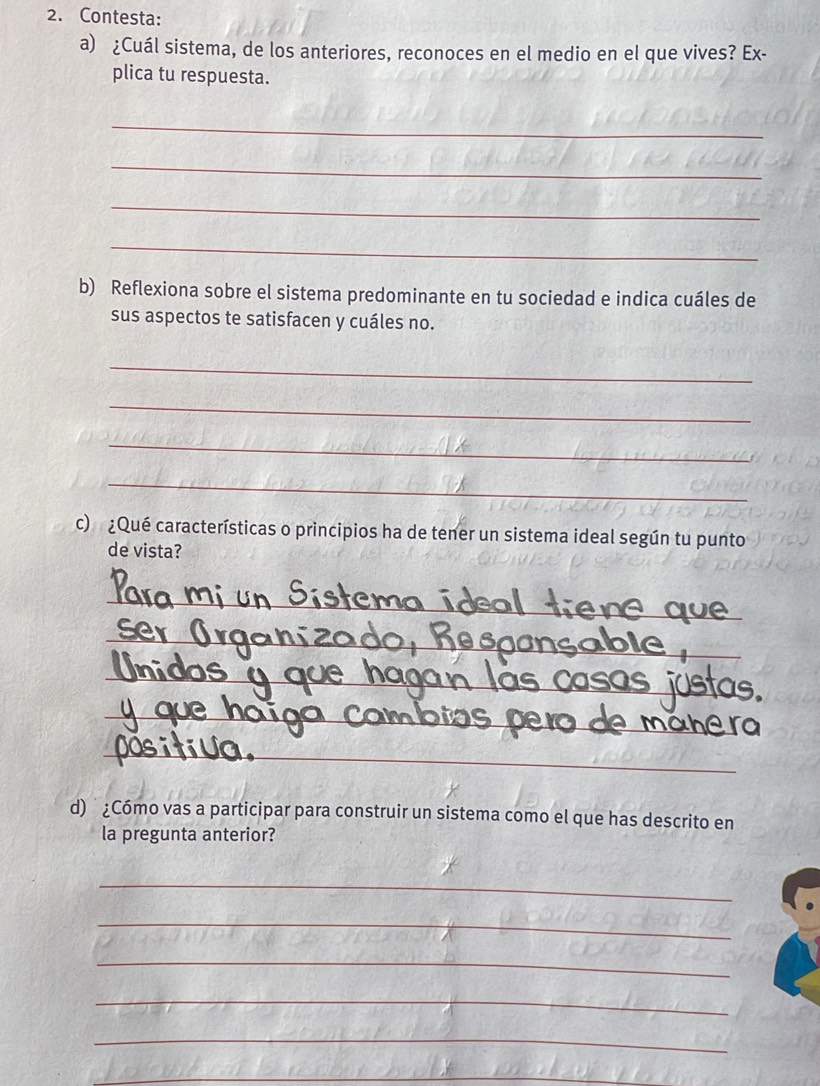 2. Contesta:
a) ¿Cuál sistema, de los anteriores, reconoces en el medio en el que vives? Ex-
plica tu respuesta.
b) Reflexiona sobre el sistema predominante en tu sociedad e indica cuáles de
sus aspectos te satisfacen y cuáles no.
c) ¿Qué características o principios ha de tener un sistema ideal según tu punto
de vista?
Para mi un Sistema ideal tiene que
ser Organizado, Responsable,
Unidos y que hagan las cosas justas.
y que haiga cambios pero de manera
positiva.
d) ¿Cómo vas a participar para construir un sistema como el que has descrito en
la pregunta anterior?